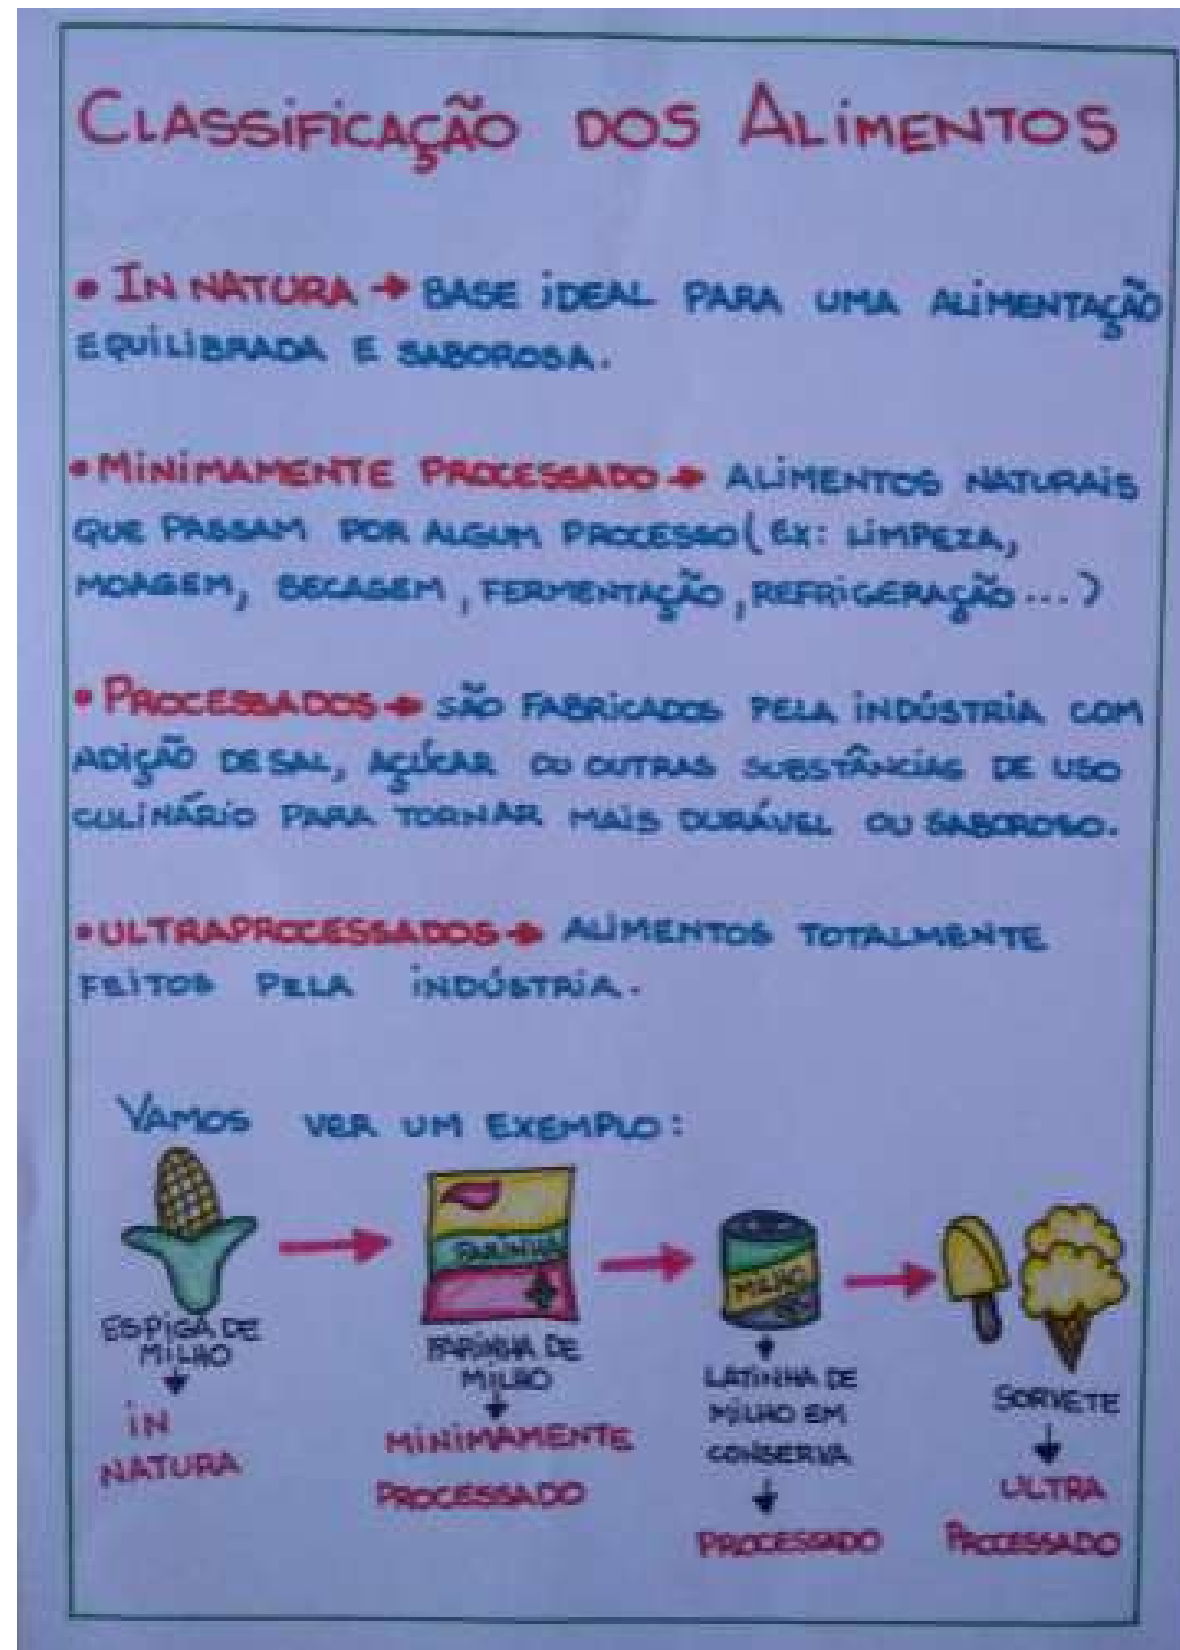 CLASSIFICAÇÃO DOS ALIMENTOS
• IN NATURA → BASE IDEAL PARA UMA ALIMENTAÇÃO
EQUILIBRADA E SABOROSA.
• MINIMAMENTE PROCESSADO → ALIMENTOS NATURAIS
QUE PASSAM POR ALGUM PROCESSO (EX: LIMPEZA,
MOAGEM, SECAGEM, FERMENTAÇÃO, REFRIGERAÇÃO...)
• PROCESSADOS → SÃO FABRICADOS PELA INDÚSTRIA COM
ADIÇÃO DE SAL, AÇÚCAR OU OUTRAS SUBSTÂNCIAS DE USO
CULINÁRIO PARA TORNAR MAIS DURÁVEL OU SABOROSO.
• ULTRAPROCESSADOS → ALIMENTOS TOTALMENTE
FEITOS PELA INDÚSTRIA.
VAMOS VER UM EXEMPLO:
FARINHA
MILHO
ESPIGA DE
MILHO
IN
NATURA
FARINHA DE
MILHO
MINIMAMENTE
PROCESSADO
LATINHA DE
MILHO EM
CONSERVA
PROCESSADO
SORVETE
ULTRA
PROCESSADO